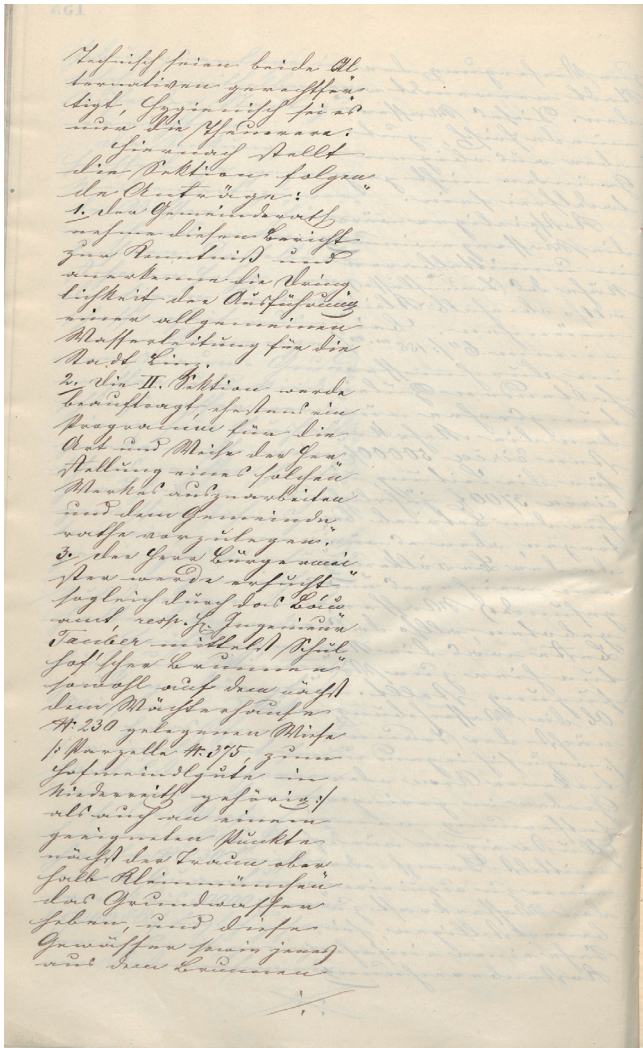 Technisch seien beide Al
ternativen gerechtfer„
tigt, hygienisch sei es
nur die Theuerere.
Hiernach stellt
die Sektion folgen„
de Anträge:
1. Der Gemeinderath
nehme diesen Bericht
zur Kenntniß und
anerkenne die Dring
lichkeit der Ausführung
einer allgemeinen
Wasserleitung für die
Stadt Linz.
2. Die II. Sektion werde
beauftragt, ehestens ein
Programm für die
Art und Weise der Her„
stellung eines solchen
Werkes auszuarbeiten
und dem Gemeinde
rathe vorzulegen.
3. Der Herr Bürgermei
ster werde ersucht
sogleich durch das Bau„
amt, resp. H. Ingenieur
Tauber mittelst Schul
hof'scher Brunnen
sowohl auf dem nächst
dem Wächterhause
N: 230 gelegenen Wiese
/: Parzelle N: 375, zum
Hofmeindlgute in
Niederreith gehörig :/
als auch an einem
geeigneten Punkte
nächst der Traun ober
halb Kleinmünchen
das Grundwasser
heben, und diese
Gewässer sowie jenes
aus dem Brunnen
./.